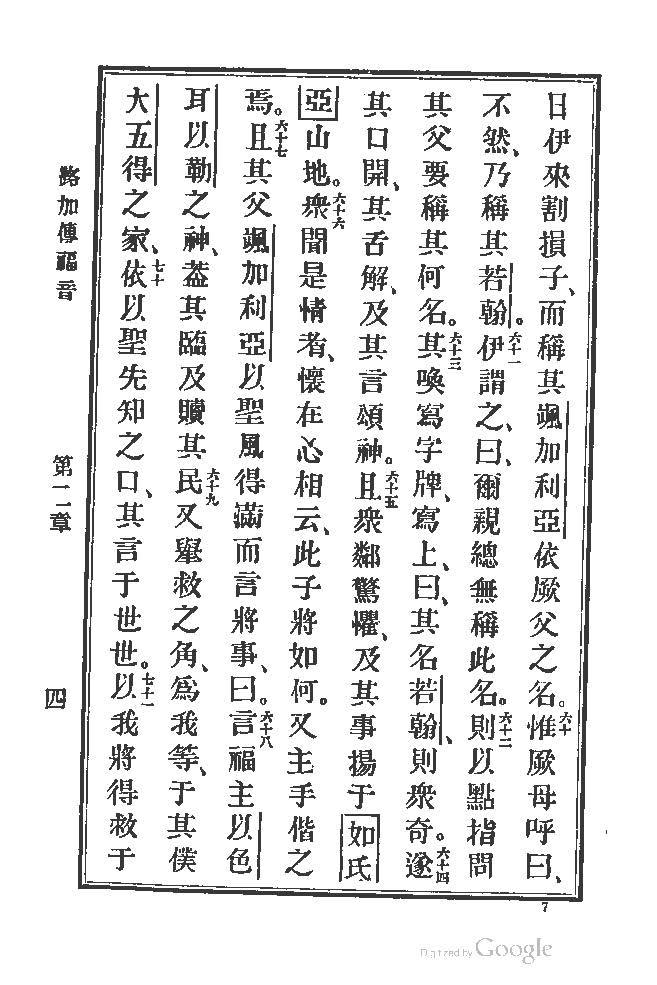 日伊來割損子、而稱其颯加利亞依厥父之名。六十惟厥母呼曰、
不然、乃稱其若翰。六十一伊謂之、曰、爾親總無稱此名。六十二則以點指問
其父要稱其何名。六十三其喚寫字牌、寫上、曰、其名若翰、則衆奇。六十四遂
其口開、其舌解、及其言頌神。六十五且衆鄰驚懼、及其事揚于如氏
亞山地。六十六衆聞是情者、懷在心相云、此子將如何。又主手偕之
焉。六十七且其父颯加利亞以聖風得滿而言將事、曰。六十八言福主以色
耳以勒之神、葢其臨及贖其民六十九又舉救之角、為我等、于其僕
大五得之家、七十依以聖先知之口、其言于世世。七十一以我將得救于
路加傳福音 第二章 四
7
Digitized by Google